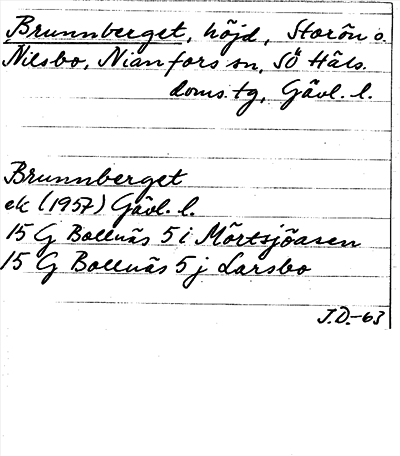 Brunnberget, höjd, Storön o.
Nilsbo, Nianfors sn, Sö Häls.
doms. tg, Gävl. l.
Brunnberget
ek (1957) Gävl. l.
15 G Bollnäs 5 i Mörtsjöasen
15 G Bollnäs 5 j Larsbo
J.D.-63